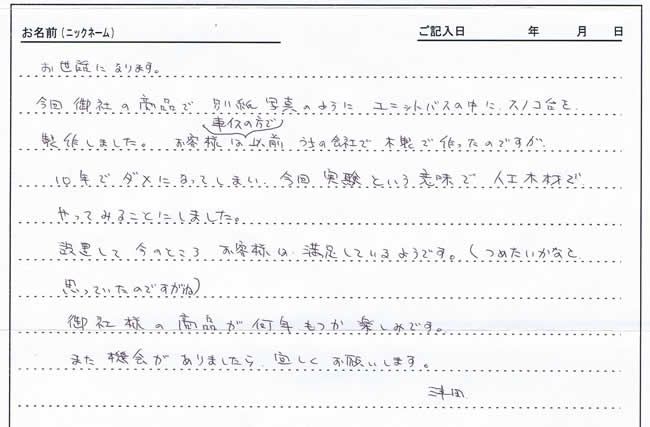 お名前(ニックネーム) ご記入日 年 月 日
お世話になります。
今回 御社の商品で 別紙写真のように ユニットバスの中に、スノコ台を
車イスの方で
製作しました。 お客様は以前 うちの会社で 木製で作ったのですが
10年でダメになってしまい、今回 実験という意味で 人工木材で
やってみることにしました。
設置して 今のところ お客様は 満足しているようです。(つめたいかなと
思っていたのですがね)
御社様の商品が何年もつか楽しみです。
また機会がありましたら 宜しくお願いします。
津田